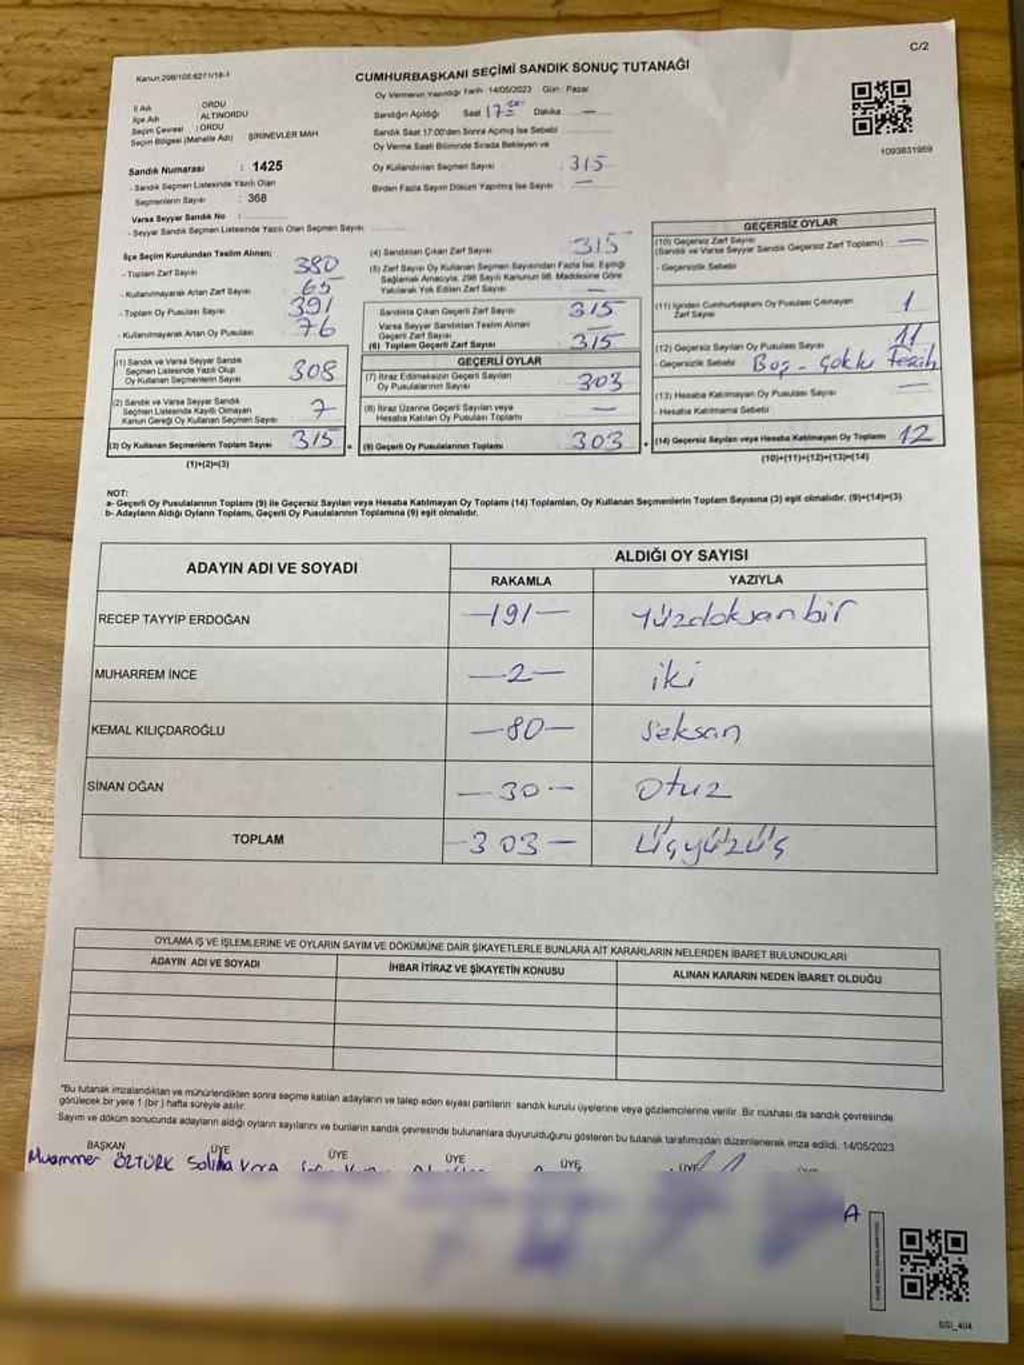 C/2
Kanun 298/105:6271/18-1
CUMHURBAŞKANI SEÇİMİ SANDIK SONUÇ TUTANAĞI
Oy Vermenin Yapıldığı Tarih : 14/05/2023 Gün : Pazar
İl Adı : ORDU
İlçe Adı : ALTINORDU
Seçim Çevresi : ORDU
Seçim Bölgesi (Mahalle Adı) ŞİRİNEVLER MAH
Sandığın Açıldığı Saat 17:00 Dakika —
Sandık Saat 17:00'den Sonra Açılmış İse Sebebi
Oy Verme Saati Bitiminde Sırada Bekleyen ve
Oy Kullandırılan Seçmen Sayısı : 315
Birden Fazla Sayım Döküm Yapılmış İse Sayısı —
1093831959
Sandık Numarası : 1425
- Sandık Seçmen Listesinde Yazılı Olan
Seçmenlerin Sayısı : 368
Varsa Seyyar Sandık No :
- Seyyar Sandık Seçmen Listesinde Yazılı Olan Seçmen Sayısı
İlçe Seçim Kurulundan Teslim Alınan;
- Toplam Zarf Sayısı 380
- Kullanılmayarak Artan Zarf Sayısı 65
- Toplam Oy Pusulası Sayısı 391
- Kullanılmayarak Artan Oy Pusulası 76
(1) Sandık ve Varsa Seyyar Sandık
Seçmen Listesinde Yazılı Olup
Oy Kullanan Seçmenlerin Sayısı 308
(2) Sandık ve Varsa Seyyar Sandık
Seçmen Listesinde Kayıtlı Olmayan
Kanun Gereği Oy Kullanan Seçmen Sayısı 7
(3) Oy Kullanan Seçmenlerin Toplam Sayısı 315
(1)+(2)=(3)
(4) Sandıktan Çıkan Zarf Sayısı 315
(5) Zarf Sayısı Oy Kullanan Seçmen Sayısından Fazla İse, Eşitliği
Sağlamak Amacıyla, 298 Sayılı Kanunun 98. Maddesine Göre
Yakılarak Yok Edilen Zarf Sayısı —
Sandıkta Çıkan Geçerli Zarf Sayısı 315
Varsa Seyyar Sandıktan Teslim Alınan
Geçerli Zarf Sayısı —
(6) Toplam Geçerli Zarf Sayısı 315
GEÇERLİ OYLAR
(7) İtiraz Edilmeksizin Geçerli Sayılan
Oy Pusulalarının Sayısı 303
(8) İtiraz Üzerine Geçerli Sayılan veya
Hesaba Katılan Oy Pusulası Toplamı —
(9) Geçerli Oy Pusulalarının Toplamı 303
GEÇERSİZ OYLAR
(10) Geçersiz Zarf Sayısı —
(Sandık ve Varsa Seyyar Sandık Geçersiz Zarf Toplamı)
- Geçersizlik Sebebi
(11) İçinden Cumhurbaşkanı Oy Pusulası Çıkmayan
Zarf Sayısı 1
(12) Geçersiz Sayılan Oy Pusulası Sayısı 11
- Geçersizlik Sebebi Boş - Çoklu Tercih
(13) Hesaba Katılmayan Oy Pusulası Sayısı —
- Hesaba Katılmama Sebebi
(14) Geçersiz Sayılan veya Hesaba Katılmayan Oy Toplamı 12
(10)+(11)+(12)+(13)=(14)
NOT:
a- Geçerli Oy Pusulalarının Toplamı (9) ile Geçersiz Sayılan veya Hesaba Katılmayan Oy Toplamı (14) Toplamları, Oy Kullanan Seçmenlerin Toplam Sayısına (3) eşit olmalıdır. (9)+(14)=(3)
b- Adayların Aldığı Oyların Toplamı, Geçerli Oy Pusulalarının Toplamına (9) eşit olmalıdır.
ADAYIN ADI VE SOYADI ALDIĞI OY SAYISI
RAKAMLA YAZIYLA
RECEP TAYYİP ERDOĞAN —191— Yüzdoksanbir
MUHARREM İNCE —2— iki
KEMAL KILIÇDAROĞLU —80— Seksan
SİNAN OĞAN —30— Otuz
TOPLAM —303— Üçyüzüç
OYLAMA İŞ VE İŞLEMLERİNE VE OYLARIN SAYIM VE DÖKÜMÜNE DAİR ŞİKAYETLERLE BUNLARA AİT KARARLARIN NELERDEN İBARET BULUNDUKLARI
ADAYIN ADI VE SOYADI İHBAR İTİRAZ VE ŞİKAYETİN KONUSU ALINAN KARARIN NEDEN İBARET OLDUĞU
"Bu tutanak imzalandıktan ve mühürlendikten sonra seçime katılan adayların ve talep eden siyasi partilerin sandık kurulu üyelerine veya gözlemcilerine verilir. Bir nüshası da sandık çevresinde
görülecek bir yere 1 (bir) hafta süreyle asılır.
Sayım ve döküm sonucunda adayların aldığı oyların sayılarını ve bunların sandık çevresinde bulunanlara duyurulduğunu gösteren bu tutanak tarafımızdan düzenlenerek imza edildi. 14/05/2023
BAŞKAN ÜYE ÜYE ÜYE ÜYE ÜYE
Muammer ÖZTÜRK
A